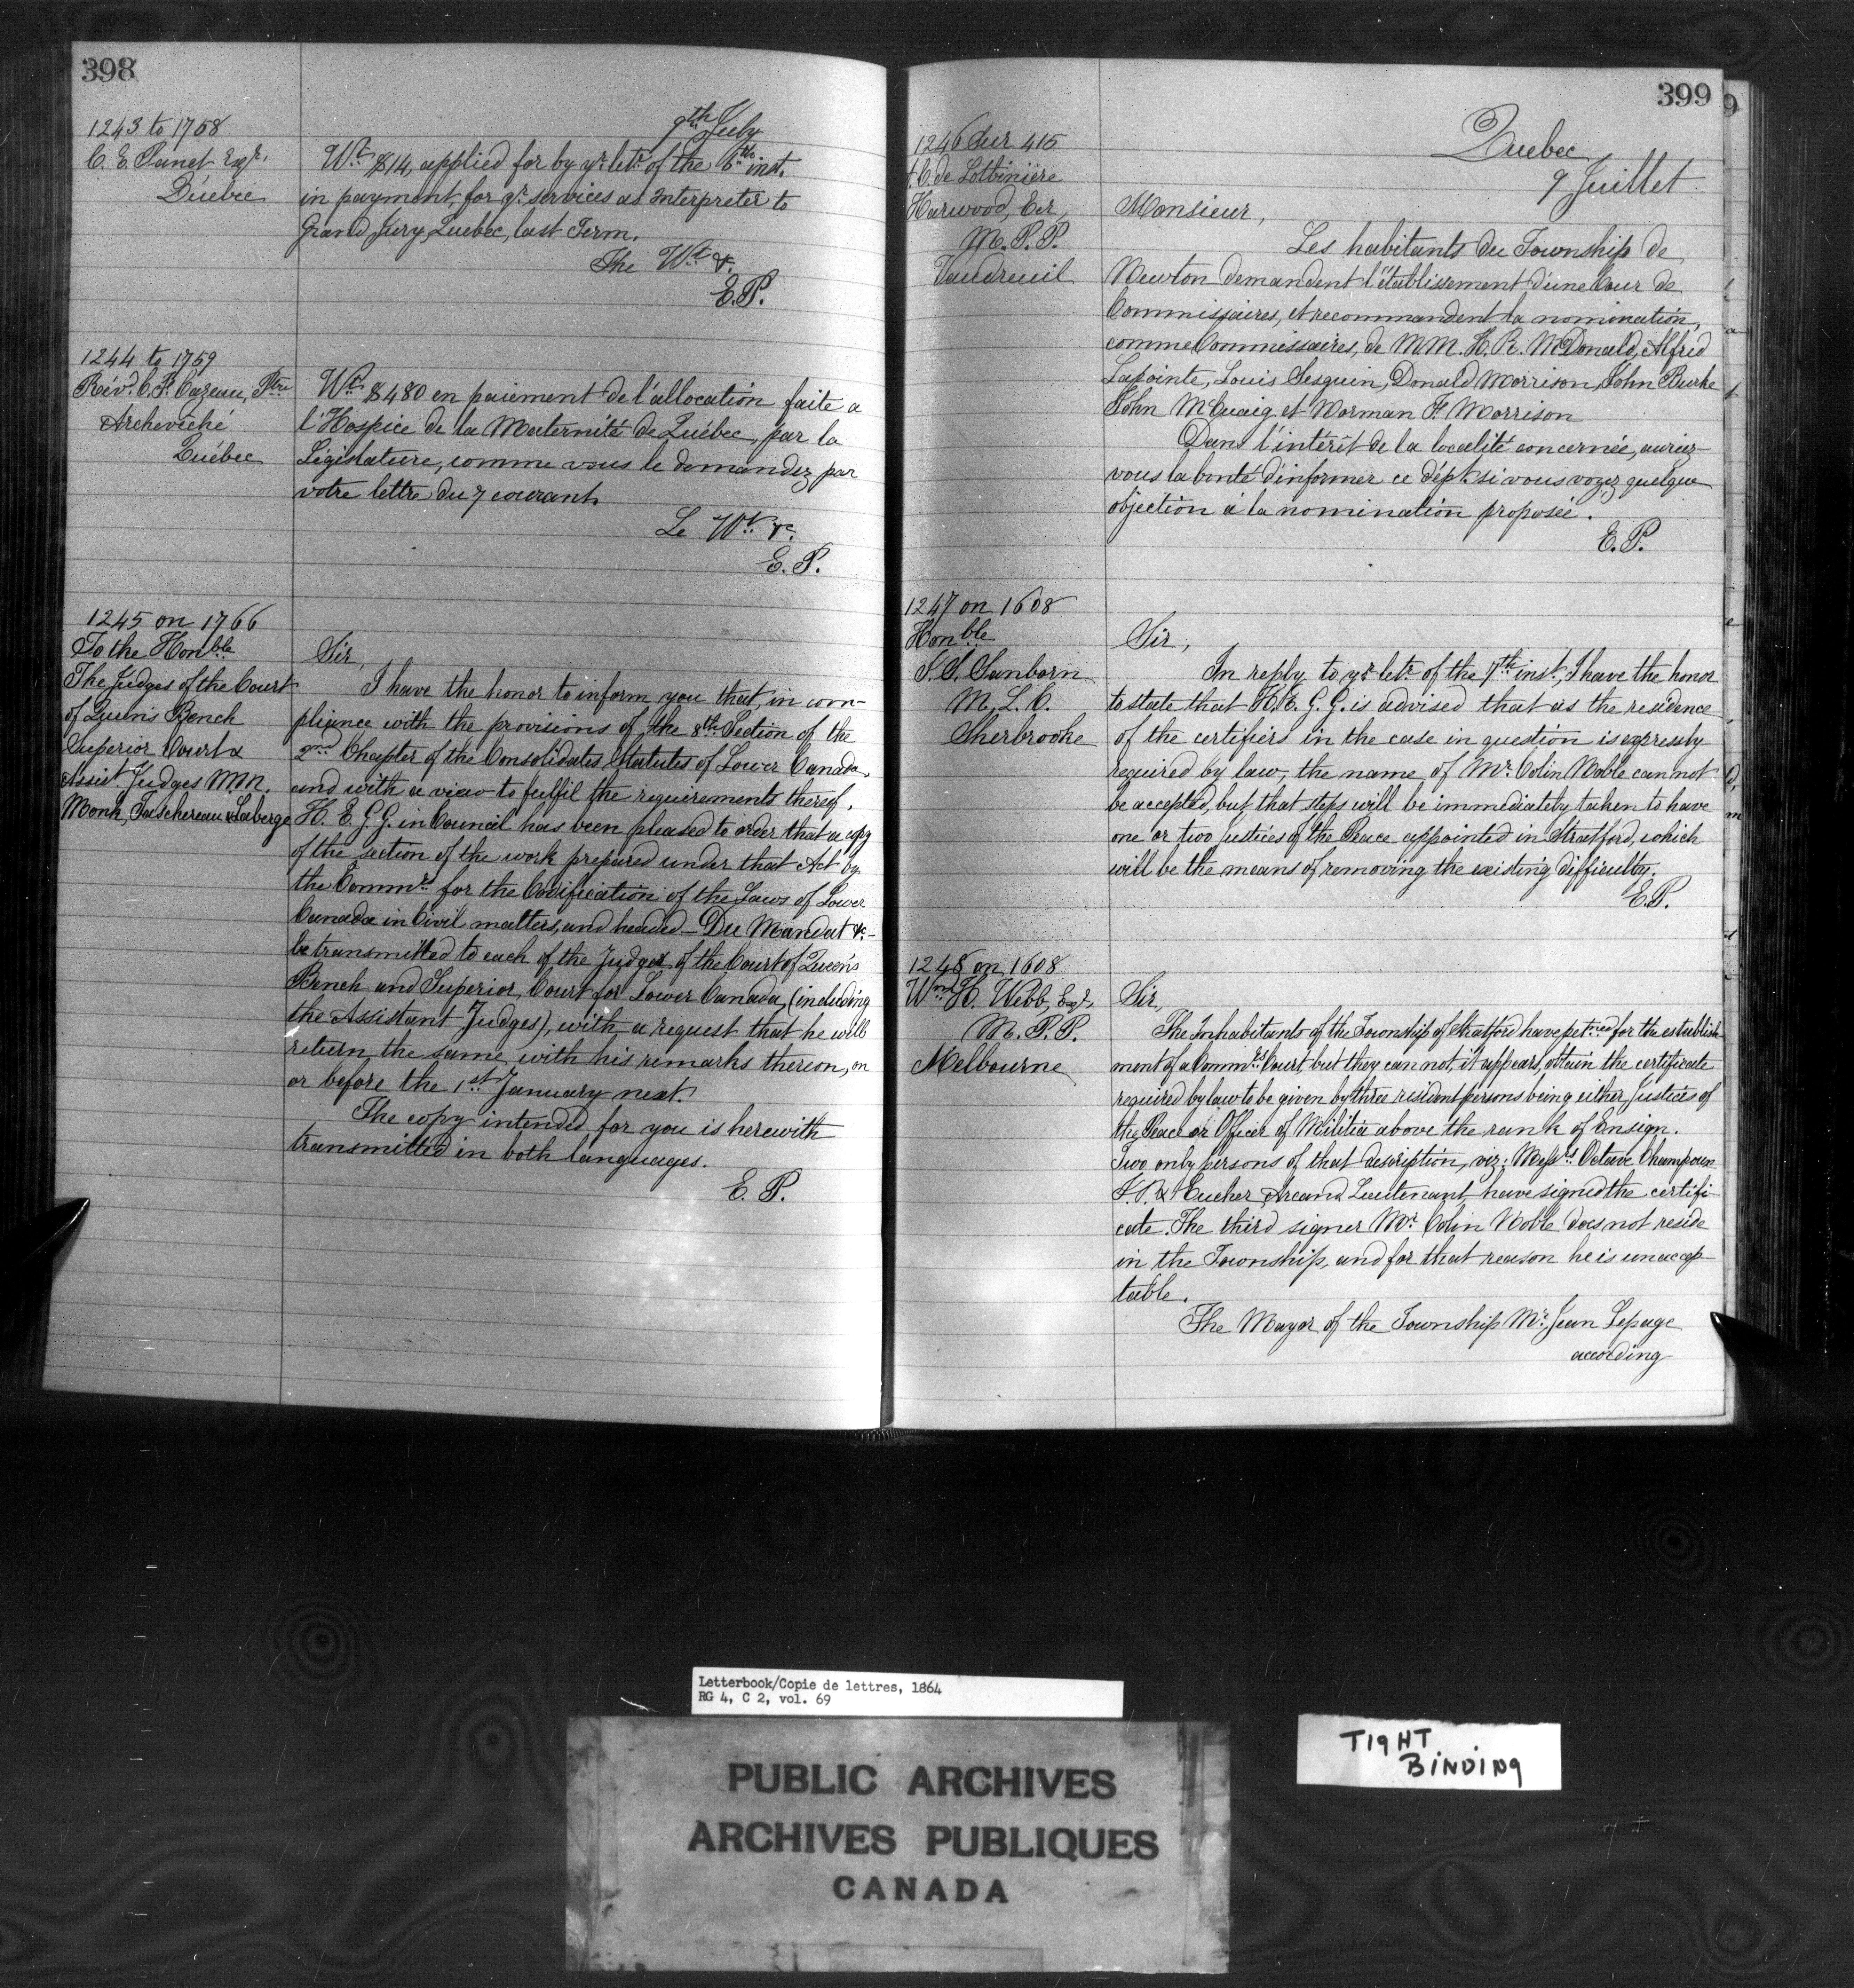 398
9th July
1243 to 1758
C. E. Panet Esqr.
Quebec
Wt. $14, applied for by yr. letr. of the 6th inst.
in payment, for yr. services as Interpreter to
Grand Jury, Quebec, last Term.
The Wt. &.
E.P.
1244 to 1759
Révd. C. F. Cazeau, Ptre
Archevêché
Québec
Wt. $480 en paiement de l'allocation faite a
l'Hospice de la Maternité de Québec, par la
Législature, comme vous le demandez par
votre lettre du 7 courant.
Le Wt. &c.
E. P.
1245 on 1766
To the Honble
The Judges of the Court
of Queen's Bench
Superior Court &
Assist. Judges M.M.
Monk, Taschereau & Laberge
Sir,
I have the honor to inform you that, in com-
pliance with the provisions of the 8th Section of the
2nd Chapter of the Consolidates Statutes of Lower Canada,
and with a view to fulfil the requirements thereof,
H. E. G. G. in Council has been pleased to order that a copy
of the section of the work prepared under that Act by
the Commrs. for the Codification of the Laws of Lower
Canada in Civil matters, and headed – Du Mandat &c. –
be transmitted to each of the Judges of the Court of Queen's
Bench and Superior Court for Lower Canada, (including
the Assistant Judges), with a request that he will
return the same with his remarks thereon, on
or before the 1st January next.
The copy intended for you is herewith
transmitted in both languages.
E. P.
399
Quebec
9 Juillet
1246 sur 415
A. C. de Lotbinière
Harwood, Ecr,
M. P. P.
Vaudreuil
Monsieur,
Les habitants du Township de
Newton demandent l'établissement d'une Cour de
Commissaires, et recommandent la nomination,
comme Commissaires, de M.M. H. R. McDonald, Alfred
Lapointe, Louis Sesguin, Donald Morrison, John Burke
John McCuaig et Norman F. Morrison
Dans l'intérêt de la localité concernée, auriez-
vous la bonté d'informer ce dépt. si vous voyez quelque
objection à la nomination proposée.
E. P.
1247 on 1608
Honble
J. S. Sanborn
M. L. C.
Sherbrooke
Sir,
In reply to yr. letr. of the 7th inst., I have the honor
to state that H. E. G. G. is advised that as the residence
of the certifiers in the case in question is expressly
required by law, the name of Mr. Colin Noble can not
be accepted, but that steps will be immediately taken to have
one or two justices of the Peace appointed in Stratford, which
will be the means of removing the existing difficulty.
E.P.
1248 on 1608
Wm. H. Webb, Esqr,
M. P. P.
Melbourne
Sir,
The Inhabitants of the Township of Stratford have petned for the establish-
ment of a Commrs. Court, but they can not, it appears, obtain the certificate
required by law to be given by three resident persons being either Justices of
the Peace or Officer of Militia above the rank of Ensign.
Two only persons of that description, viz: Messrs. Octave Champoux
J.P. & Eucher Arcand Lieutenant, have signed the certifi-
cate. The third signer Mr. Colin Noble does not reside
in the Township, and for that reason he is unaccep-
table.
The Mayor of the Township Mr. Jean Lepage
according
Letterbook/Copie de lettres, 1864
RG 4, C 2, vol. 69
TIGHT
BINDING
PUBLIC ARCHIVES
ARCHIVES PUBLIQUES
CANADA